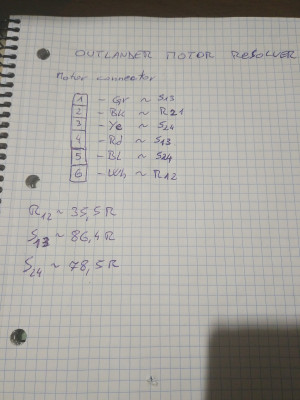 OUTLANDER MOTOR RESOLVER
Motor connector
1 - Gr ~ S13
2 - Bk ~ R21
3 - Ye ~ S24
4 - Rd ~ S13
5 - BL ~ S24
6 - Wh ~ R12
R12 ~ 35,5R
S13 ~ 86,4R
S24 ~ 78,5R